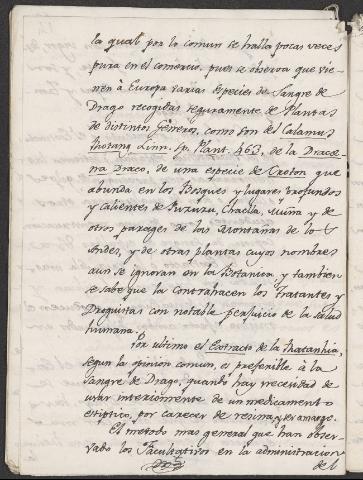 la qual por lo comun se halla pocas veces
pura en el comercio, pues se observa que vie-
nen à Europa varias especies de Sangre de
Drago recogidas seguramente de Plantas
de distintos Géneros, como son del Calamus
Rotang Linn. Sp. Plant. 463, de la Dracæ-
na Draco, de una especie de Croton que
abunda en los Bosques y lugares profundos
y calientes de Puzuzu, Chaclla, Muña y de
otros parages de las Montañas de los
Andes, y de otras plantas cuyos nombres
aun se ignoran en la Botanica, y tambien
se sabe que la contrahacen los Tratantes y
Droguistas con notable perjuicio de la salud
humana.
Por ultimo el Extracto de la Ratanhia,
segun la opinion comun, es preferible à la
Sangre de Drago, quando hay necesidad de
usar interiormente de un medicamento
estiptico, por carecer de resina, y ser amargo.
El metodo mas general que han obser-
vado los Facultativos en la administracion
del